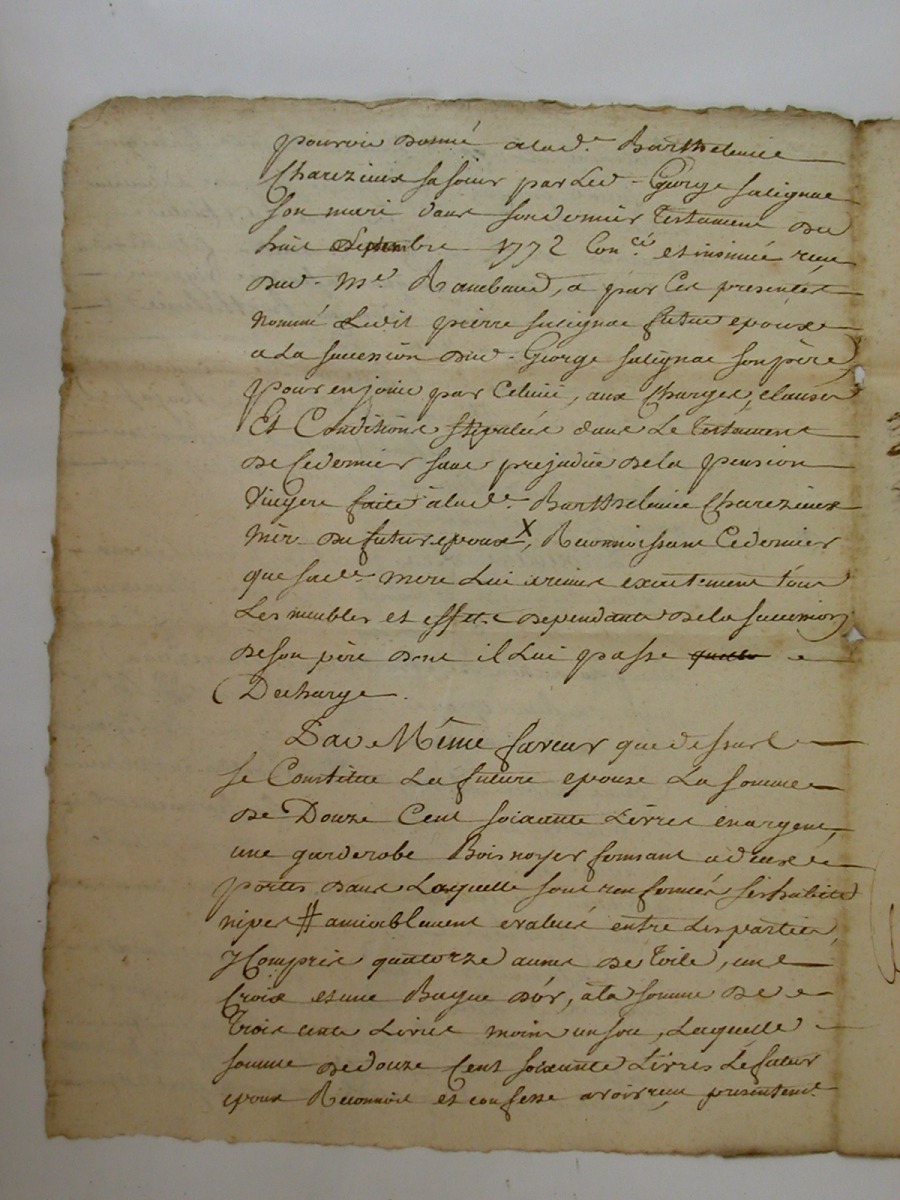 pouvoir donné a lad.e Barthelemie
Charezieux sa soeur par led. George salignac
son mari dans son dernier Testament du
huit Septembre 1772 Con.lé et insinué reçu
dud. M.e Rambaud, a par Ces presentes
nommé Ledit pierre salignac futur epoux
a La succession dud. George salignac son père,
pour en jouir par Celuici, aux Charges, clauses
Et Conditions stipulées dans Le Testament
de Ce dernier sans prejudice de la pension
Viagere faite à lad.e Barthelemie Charezieux
Mère du futur epoux X, Reconnoissant Ce dernier
que sad.e mere Lui a remis exactement tous
Les meubles et effets dependants de la succession
de son père dont il Lui passe
Decharge.
D'au Même faveur que dessus
se Constitue La future epouse La somme
de Douze Cent soixante Livres en argent,
une garderobe Bois noyer fermant a deux
portes dans Laquelle sont renfermés ses habits
nipes # amiablement evalués entre Les parties,
y Compris quatorze aunes de Toile, une
Croix et une Bague d'or, à la somme de
Trois cent Livres moins un sou, Laquelle
somme de douze Cent soixante Livres Le futur
epoux Reconnoit et confesse avoir reçue presentem.t